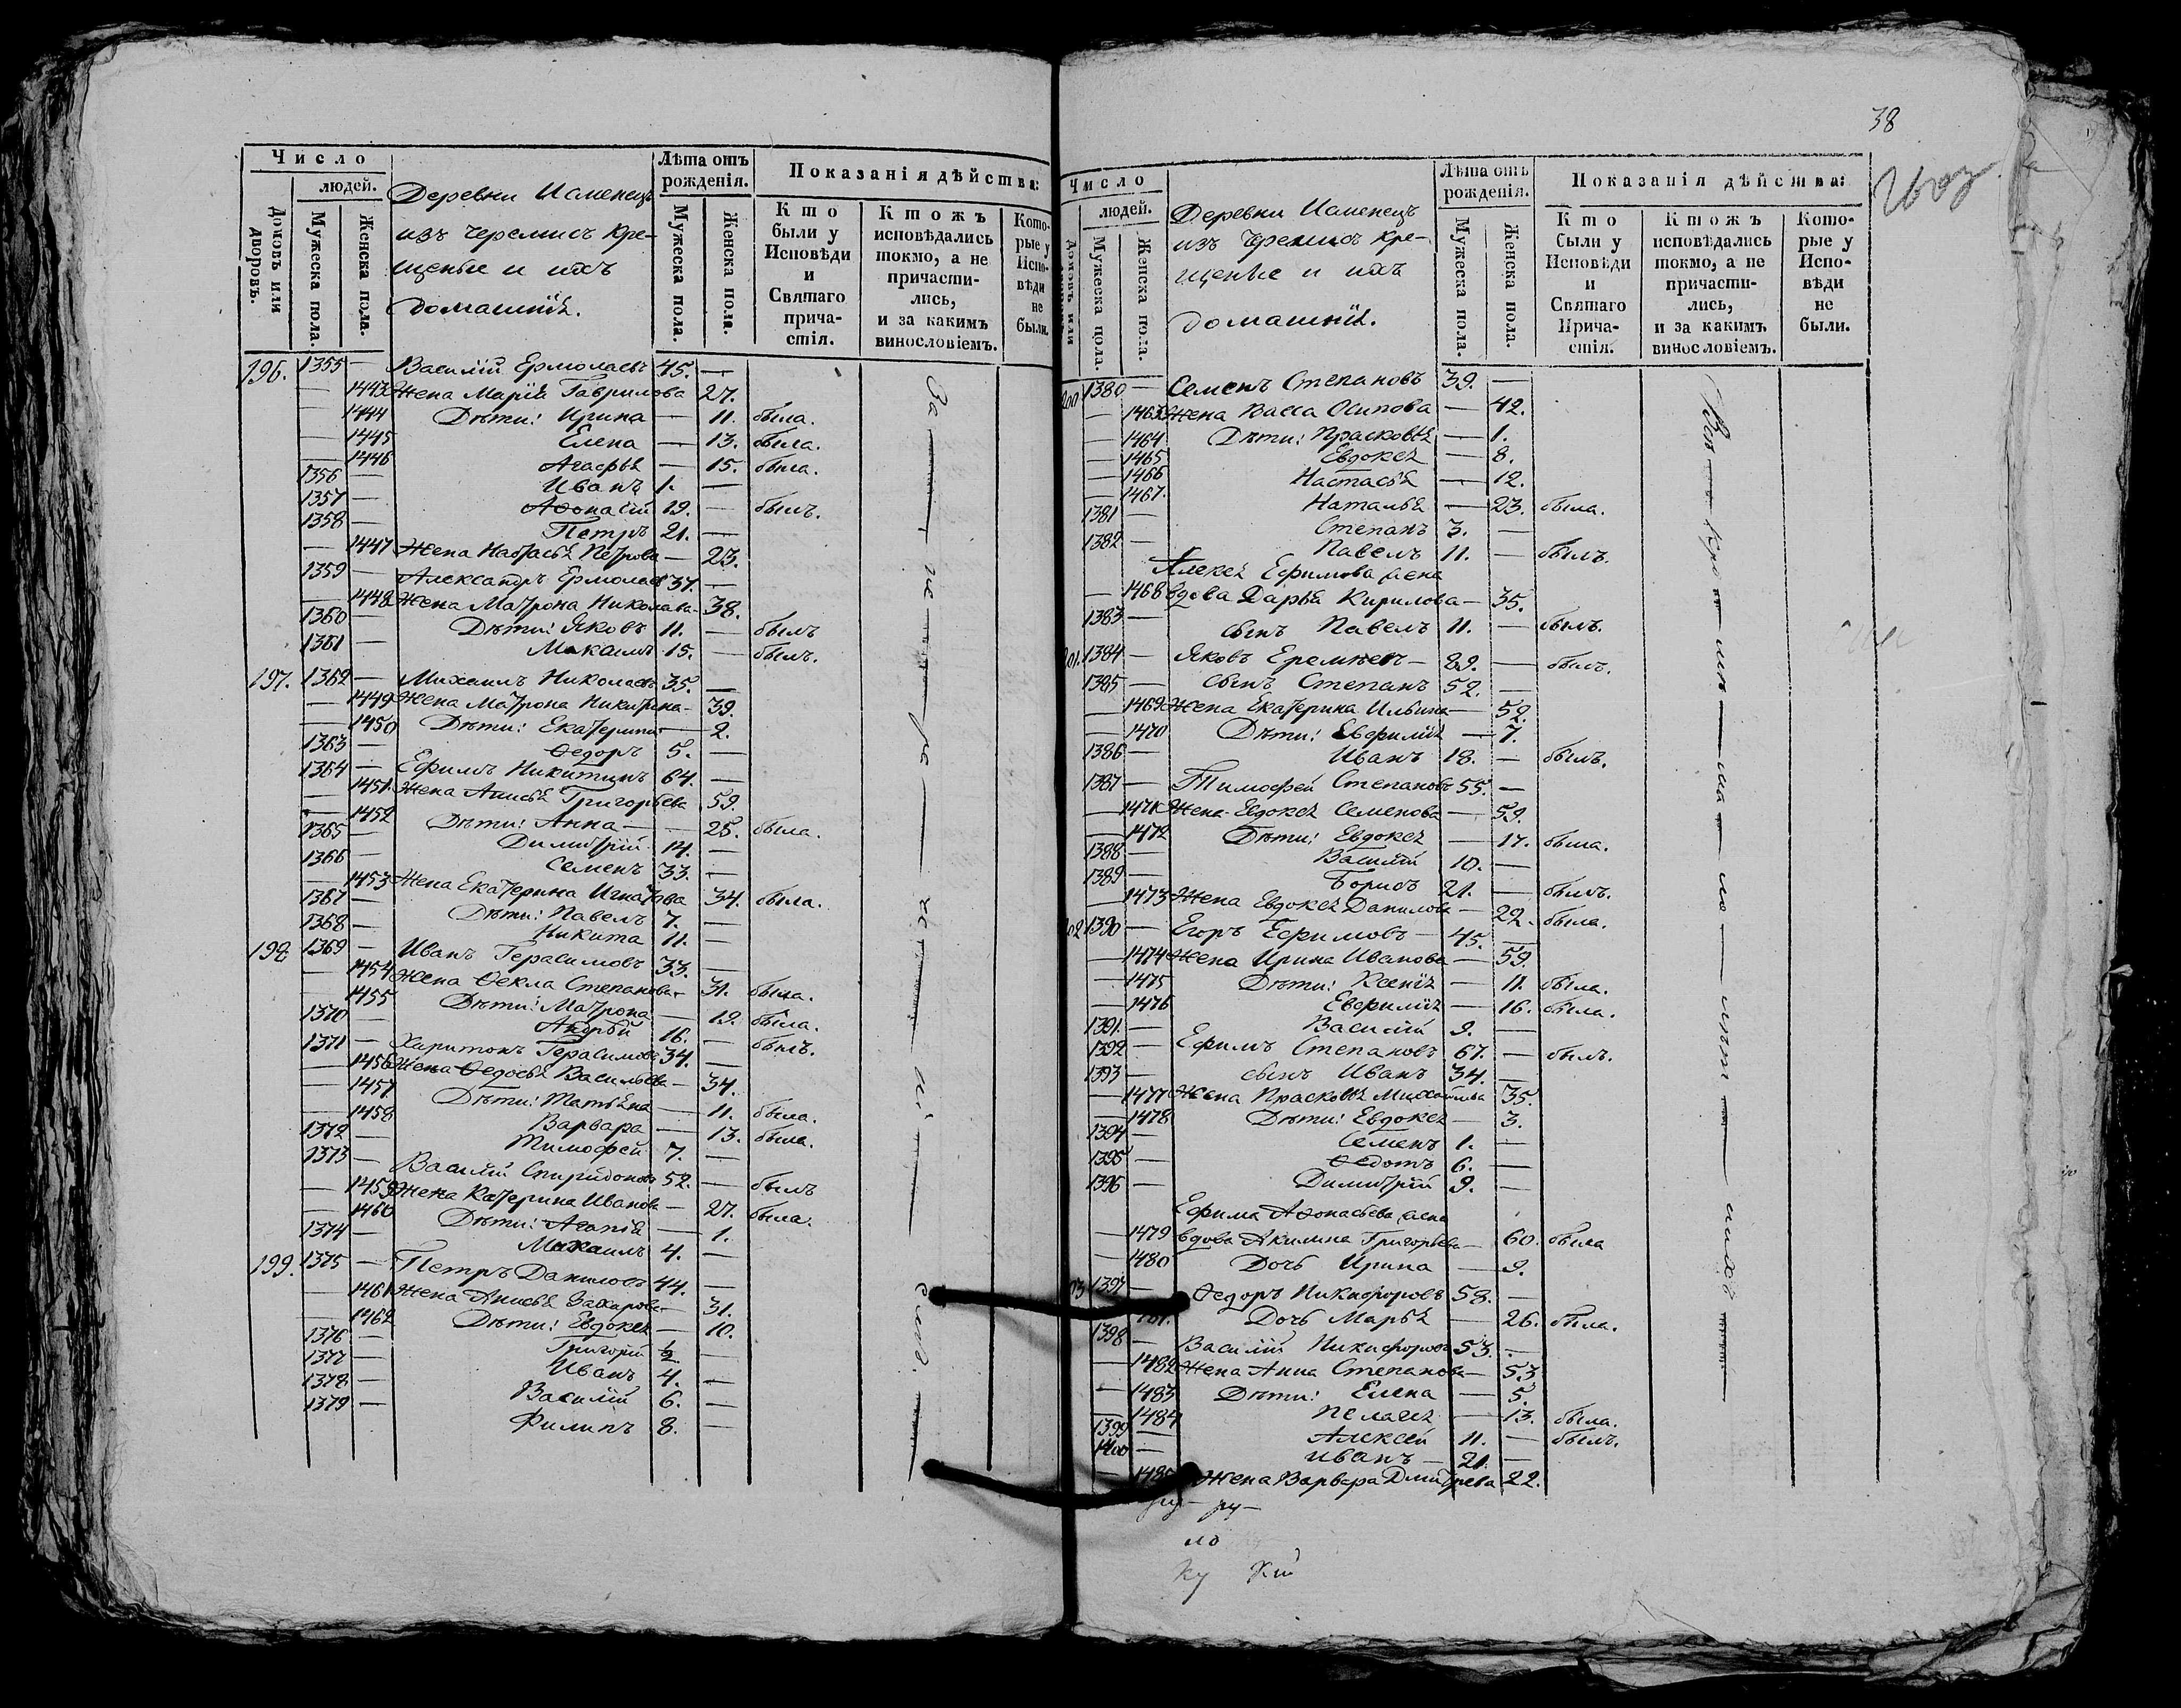 Число
людей.
Домовъ или дворовъ.
Мужеска пола.
Женска пола.
Деревни Исменецъ
изъ черемисъ кре-
щеные и ихъ
домашніѣ.
Лѣта отъ рожденія.
Мужеска пола.
Женска пола.
Показанія дѣйства:
Кто были у Исповѣди и Святаго причастія.
Ктожъ исповѣдались токмо, а не причастились, и за какимъ винословіемъ.
Которые у Исповѣди не были.
196. 1355 — Василій Ермолаевъ 45. —
— 1443 Жена Маріѣ Гаврилова 27.
— 1444 Дѣти: Ирина — 11. была.
— 1445 Елена — 13. была.
— 1446 Агафьѣ — 15. была.
1356 — Иванъ 1. —
1357 — Аѳонасій 19. — былъ.
1358 — Петръ 21. —
— 1447 Жена Настасьѣ Петрова — 23.
1359 — Александръ Ермолаевъ 37. —
— 1448 Жена Матрона Николаева — 38.
1360 — Дѣти: Яковъ 11. — былъ
1361 — Максимъ 15. — былъ.
197. 1362 — Михаилъ Николаевъ 35. —
— 1449 Жена Матрона Никитина — 39.
— 1450 Дѣти: Екатерина — 2.
1363 — Ѳедоръ 5. —
1364 — Ефимъ Никитинъ 64. —
— 1451 Жена Анисьѣ Григорьева 59.
— 1452 Дѣти: Анна — 25. была.
1365 — Димитрій 14. —
1366 — Семенъ 33. —
— 1453 Жена Екатерина Игнатова 34. была.
1367 — Дѣти: Павелъ 7. —
1368 — Никита 11. —
198 1369 — Иванъ Герасимовъ 33. —
— 1454 Жена Ѳекла Степанова — 31. была.
— 1455 Дѣти: Матрона — 19. была.
1370 — Андрѣй 16. — былъ.
1371 — Харитонъ Герасимовъ 34. —
— 1456 Жена Ѳедосьѣ Васильева — 34.
— 1457 Дѣти: Татьѣна — 11. была.
— 1458 Варвара — 13. была.
1372 — Тимофей 7. —
1373 — Василій Спиридоновъ 52. — былъ
— 1459 Жена Катерина Иванова — 27. была.
— 1460 Дѣти: Агапіѣ — 1.
1374 — Максимъ 4. —
199. 1375 — Петръ Даниловъ 44. —
— 1461 Жена Анисьѣ Захарова — 31.
— 1462 Дѣти: Евдокеѣ — 10.
1376 — Григорій ½ —
1377 — Иванъ 4. —
1378 — Василій 6. —
1379 — Филипъ 8. —
38
Число
людей.
Домовъ или
Мужеска пола.
Женска пола.
Деревни Исменецъ
изъ черемисъ кре-
щеные и ихъ
домашніѣ.
Лѣта отъ рожденія.
Мужеска пола.
Женска пола.
Показанія дѣйства:
Кто были у Исповѣди и Святаго Причастія.
Ктожъ исповѣдались токмо, а не причастились, и за какимъ винословіемъ.
Которые у Исповѣди не были.
200 1380 — Семенъ Степановъ 39. —
— 1463 Жена Васса Осипова — 42.
— 1464 Дѣти: Прасковьѣ — 1.
— 1465 Евдокеѣ — 8.
— 1466 Настасьѣ — 12.
— 1467 Натальѣ — 23. была.
1381 — Степанъ 3. —
1382 — Павелъ 11. — былъ.
Алексѣ Ефимова жена
— 1468 вдова Дарьѣ Кирилова — 35.
1383 — сынъ Павелъ 11. — былъ.
201. 1384 — Яковъ Еремѣевъ — 89. — былъ.
1385 — сынъ Степанъ 52. —
— 1469 Жена Екатерина Ильина — 52.
— 1470 Дѣти: Евфиміѣ — 7.
1386 — Иванъ 18. — былъ.
1387 — Тимофей Степановъ 55. —
— 1471 Жена Евдокеѣ Семенова — 59
— 1472 Дѣти: Евдокеѣ — 17. была.
1388 — Василій 10. —
1389 — Борисъ 21. — былъ.
— 1473 Жена Евдокеѣ Данилова — 22. была.
02 1390 — Егоръ Ефимовъ — 45. —
— 1474 Жена Ирина Иванова — 59.
— 1475 Дѣти: Ксеніѣ — 11. была.
— 1476 Евфиміѣ — 16. была.
1391. — Василій 9. —
1392 — Ефимъ Степановъ 67. — былъ.
1393 — сынъ Иванъ 34. —
— 1477 Жена Прасковьѣ Михайлова 35.
— 1478 Дѣти: Евдокеѣ — 3.
1394 — Семенъ 1. —
1395 — Ѳедотъ 6. —
1396 — Димитрій 9. —
Ефима Аѳонасьева жена
— 1479 вдова Акилина Григорьева — 60. была
— 1480 Дочь Ирина — 9.
03 1397 — Ѳедоръ Никифоровъ 58. —
Дочь Марьѣ — 26. была.
1398 — Василій Никифоровъ 53. —
— 1482 Жена Анна Степанова — 53
— 1483 Дѣти: Елена — 5.
— 1484 Пелагеѣ — 13. была.
1399 — Алексѣй 11. — былъ.
1400 — Иванъ — 21. —
— 1485 Жена Варвара Дмитрева 22.